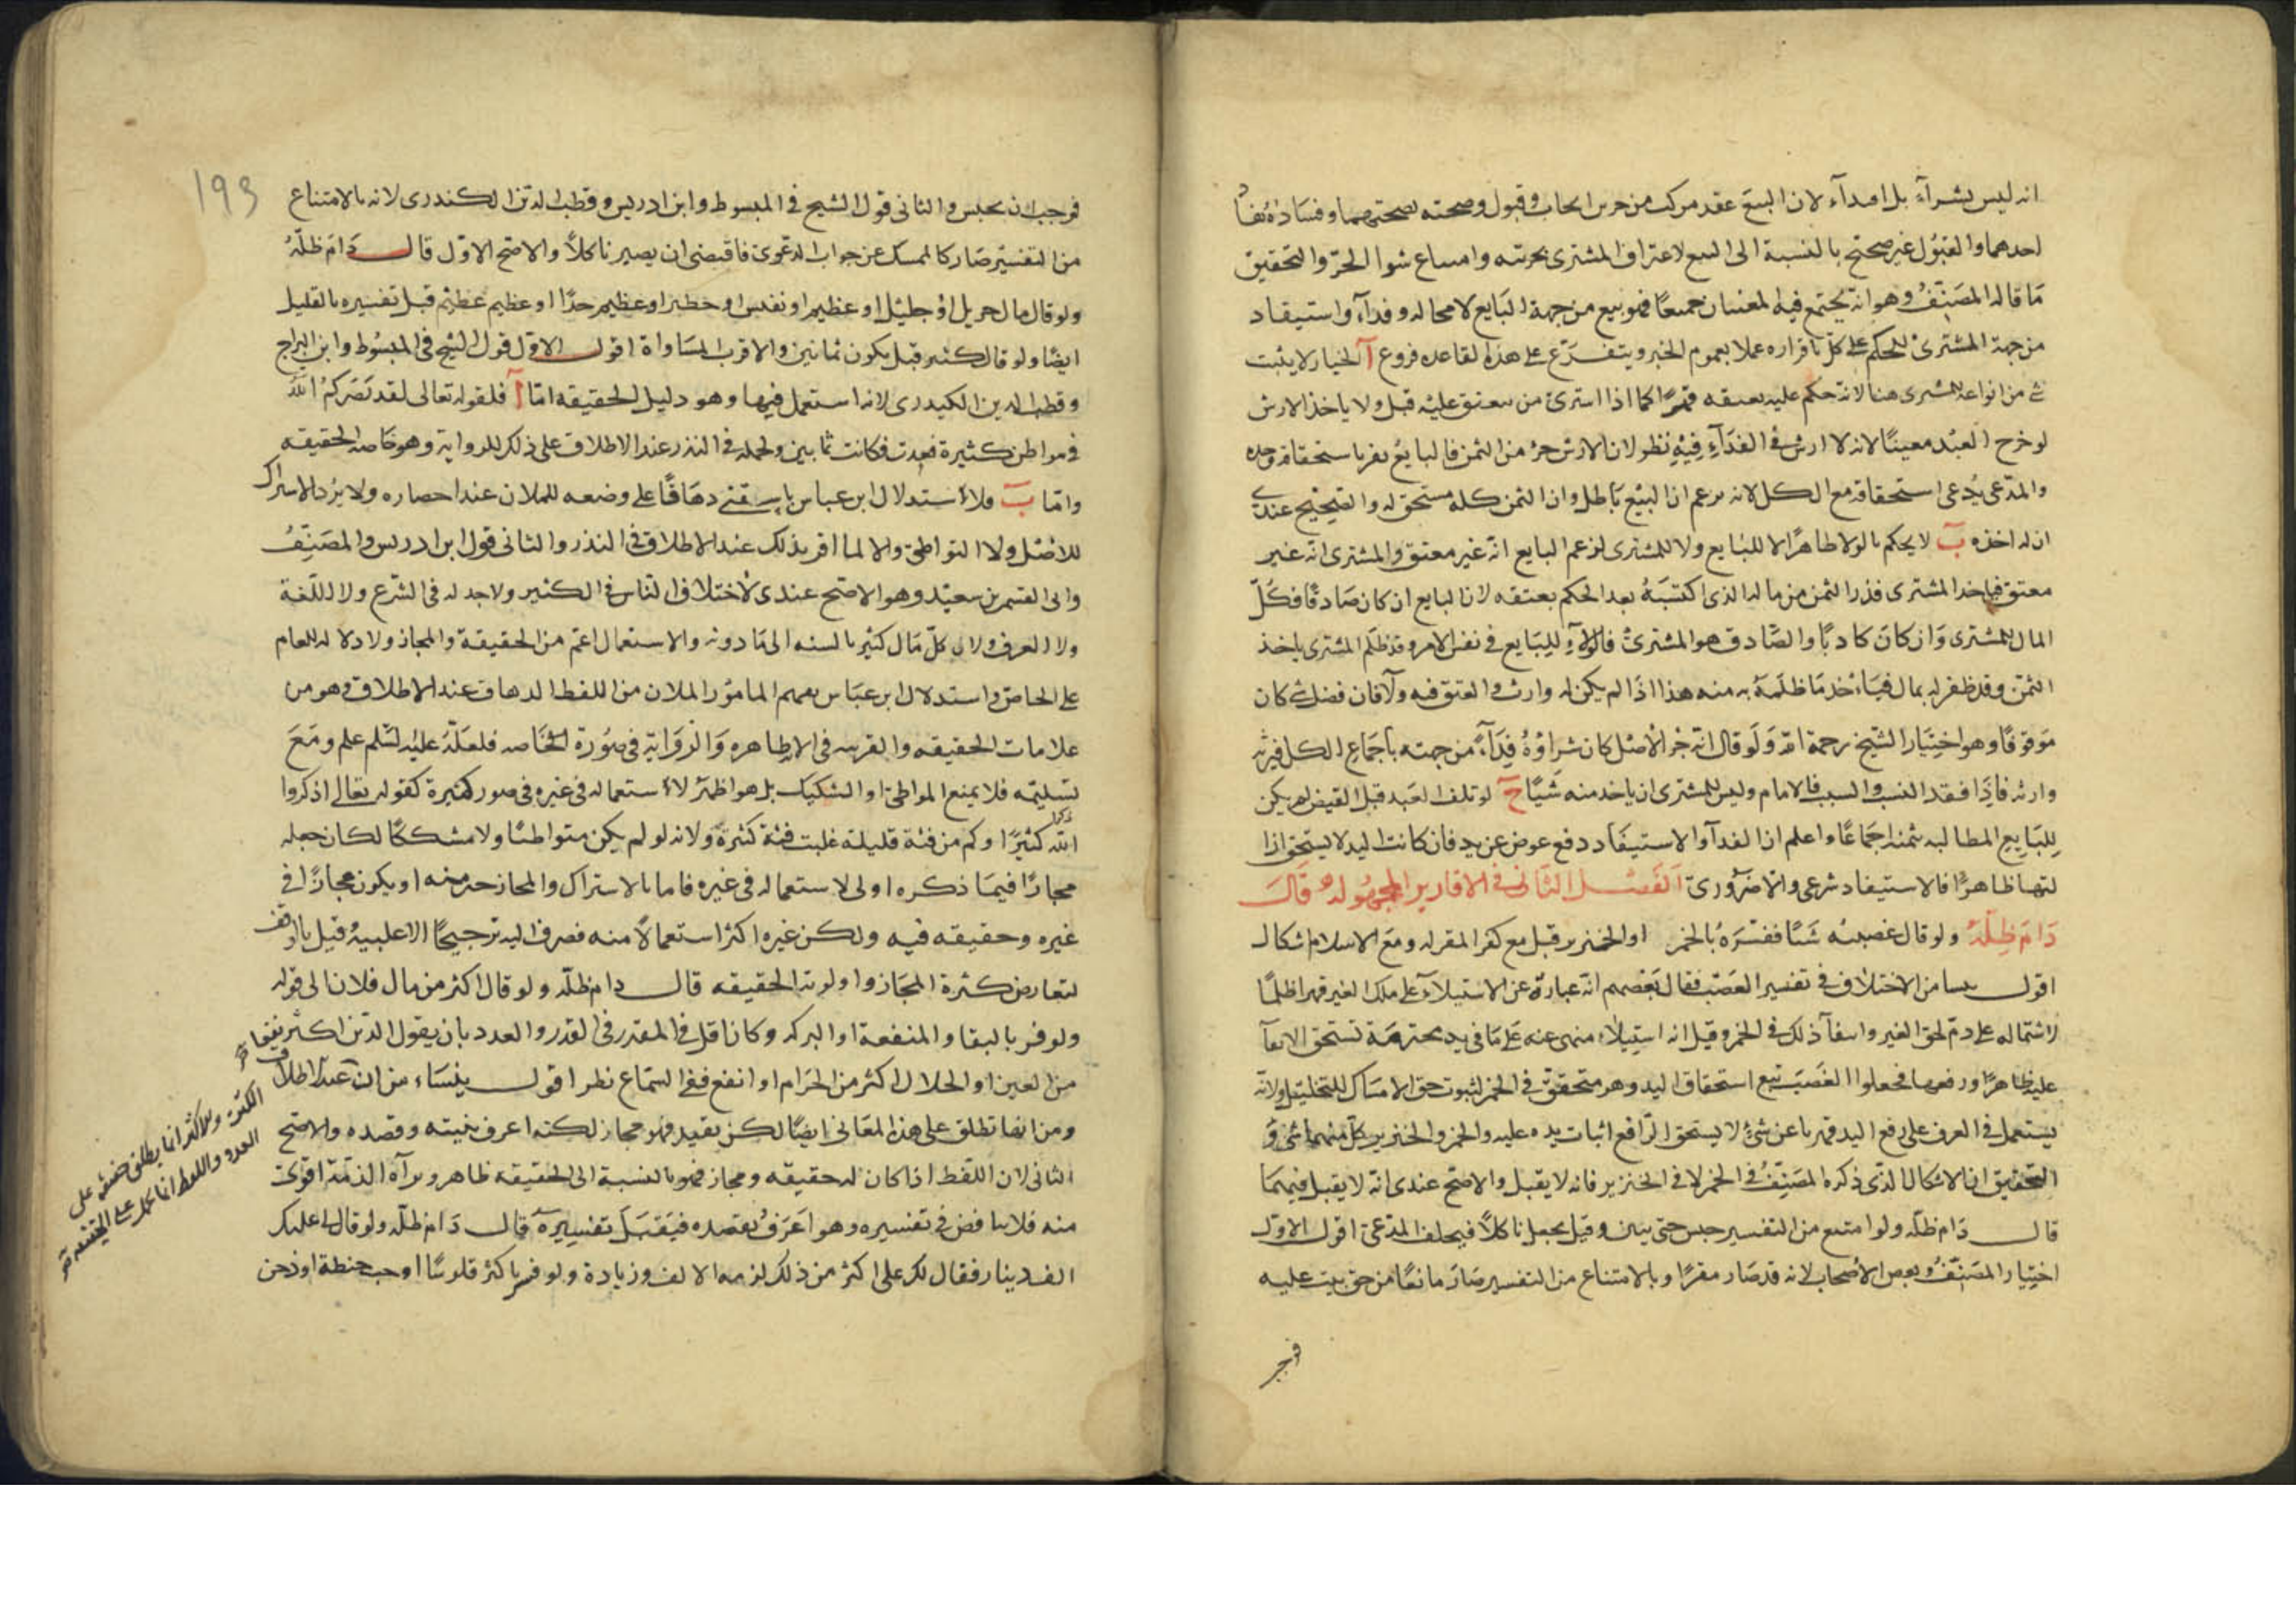 انه ليس بشرآء بل افتدآء لان البيع عقد مركب من جزين ايجاب وقبول وصحته بصحتهما وفساده بفساد
احدهما والقبول غير صحيح بالنسبة الى البيع لاعتراف المشترى بحريته وامتناع شرا الحر والتحقيق
ما قاله المصنف وهو انه يجتمع فيه المعنيان جميعا فهو بيع من جهة البايع لا محاله وفدآء واستنقاذ
من جهة المشترى للحكم على كل باقراره عملا بعموم الخبر ويتفرع على هذه القاعده فروع آ الخيار لا يثبت
شى من انواعه للمشترى هنا لانه حكم عليه بعتقه قهرا كما اذا اشترى من ينعتق عليه قبل ولا ياخذ الارش
لو خرج العبد معيبا لانه لا ارش فى الفدآء وفيه نظر لان الارش جزء من الثمن فالبايع يقر باستحقاقه وحده
والمدعى يدعى استحقاقه مع الكل لانه يزعم ان البيع باطل وان الثمن كله مستحق له والصحيح عندى
ان له اخذه ب لا يحكم بالولا ظاهرا لا للبايع ولا للمشترى لزعم البايع انه غير معتق والمشترى انه غير
معتق فياخذ المشترى قدر الثمن من ماله الذى اكتسبه بعد الحكم بعتقه لان البايع ان كان صادقا فكل
المال للمشترى وان كان كاذبا والصادق هو المشترى فالولآء للبايع فى نفس الامر وقد ظلم المشترى باخذ
الثمن وقد ظفر له بمال فياخذ ما ظلمه به منه هذا اذا لم يكن له وارث والعتق فيه ولآ فان فضل شى كان
موقوفا وهو اختيار الشيخ رحمه الله ولو قال انه حر الاصل كان شراؤه فدآء من جهته باجماع الكل فيرثه
وارثه فاذا فقد النسب والسبب فالامام وليس للمشترى ان ياخذ منه شيا ح لو تلف العبد قبل القبض لم يكن
للبايع المطالبه بثمنه اجماعا واعلم ان الفدآء والاستنقاذ دفع عوض عن يد فان كانت اليد لا يستحق ازا
لتها ظاهرا فالاستنقاذ شرعى والا ضرورى الفصل الثانى فى الاقارير المجهولة قال
دام ظله ولو قال غصبته شيا ففسره بالخمر او الخنزير قبل مع كفر المقر له ومع الاسلام اشكال
اقول ينشا من الاختلاف فى تفسير الغصب فقال بعضهم انه عبارة عن الاستيلآء على ملك الغير قهرا ظلما
لاشتماله على ذم لحق الغير وانتفآء ذلك فى الخمر وقيل انه استيلاء منهى عنه على ما فى يد محترمة تستحق الابقآ
عليه ظاهرا ورفعها فجعلوا الغصب يتبع استحقاق اليد وهو متحقق فى الخمر لثبوت حق الامساك للتخليل ولانه
يستعمل فى العرف على رفع اليد قهرا عن شئ لا يستحق الرافع اثبات يده عليه والخمر والخنزير كل منهما شئ و
التحقيق ان الاشكال الذى ذكره المصنف فى الخمر لا فى الخنزير فانه لا يقبل والاصح عندى انه لا يقبل فيهما
قال دام ظله ولو امتنع من التفسير حبس حتى يبين وقيل يجعل ناكلا فيحلف المدعى اقول الاول
اختيار المصنف وبعض الاصحاب لانه قد صار مقرا وبالامتناع من التفسير صار مانعا من حق يثبت عليه
فوجب
193
فوجب ان يحبس والثانى قول الشيخ فى المبسوط وابن ادريس وقطب الدين الكندرى لانه بالامتناع
من التفسير صار كالممسك عن جواب الدعوى فاقتضى ان يصير ناكلا والاصح الاول قال دام ظله
ولو قال مال جزيل او جليل او عظيم او نفيس او خطير او عظيم جدا او عظيم عظيم قبل تفسيره بالقليل
ايضا ولو قال كثير قيل يكون ثمانين والاقرب المساواة اقول الاول قول الشيخ فى المبسوط وابن البراج
وقطب الدين الكيدرى لانه استعمل فيها وهو دليل الحقيقه اما آ فلقوله تعالى لقد نصركم الله
فى مواطن كثيرة فعدت فكانت ثمانين ولحمله فى النذر عند الاطلاق على ذلك للرواية وهو خاصه الحقيقه
واما ب فلاستدلال ابن عباس باسقنى دهاقا على وضعه للملان عند احضاره ولا يرد الاشتراك
للاصل ولا التواطئ والا لما افر بذلك عند الاطلاق فى النذر والثانى قول ابن ادريس والمصنف
وابى القسم بن سعيد وهو الاصح عندى لاختلاف الناس فى الكثير ولا حد له فى الشرع ولا اللغة
ولا العرف ولان كل مال كثير بالنسبه الى ما دونه والاستعمال اعم من الحقيقة والمجاز ولا دلاله للعام
على الخاص واستدلال ابن عباس بفهم المامور الملان من اللفظ الدهاق عند الاطلاق وهو من
علامات الحقيقه والقرينه فى الاية ظاهره والرواية فى صورة خاصه فلعلة عليه السلم علم ومع
تسليمه فلا يمنع المواطئ او التشكيك بل هو اظهر لاستعماله فى غيره فى صور كثيرة كقوله تعالى اذكروا
الله ذكرا كثيرا وكم من فئة قليلة غلبت فئة كثيرة ولانه لو لم يكن متواطئا ولا مشككا لكان جعله
مجازا فيما ذكره اولى لاستعماله فى غيره فاما بالاشتراك والمجاز خير منه او يكون مجازا فى
غيره وحقيقه فيه ولكن غيره اكثر استعمالا منه فصرف اليه ترجيحا الاغلبية قيل بالوقف
لتعارض كثرة المجاز واولوية الحقيقه قال دام ظله ولو قال اكثر من مال فلان الى قوله
ولو فسر بالبقا والمنفعة او البركه وكان اقل فى المقدر فى القدر والعدد بان يقول الدين اكثر نفعا
من العين او الحلال اكثر من الحرام او انفع ففى السماع نظر اقول ينشاء من ان عند اطلاق
ومن انها تطلق على هذه المعانى ايضا لكن بقيد فهو مجاز لكنه اعرف بنيته وقصده والاصح
الثانى لان اللفظ اذا كان له حقيقه ومجاز فهو بالنسبة الى الحقيقه ظاهر وبرآءه الذمة اقوى
منه فلا تناقض فى تفسيره وهو اعرف بقصده فيقبل تفسيره قال دام ظله ولو قال لى عليك
الف دينار فقال لك على اكثر من ذلك لزمه الالف وزيادة ولو فسر باكثر فلوسا او حب حنطة او دخن
الكثرة والاكثر انما يطلق حقيقة على
العدد واللفظ انما يحمل على الحقيقة